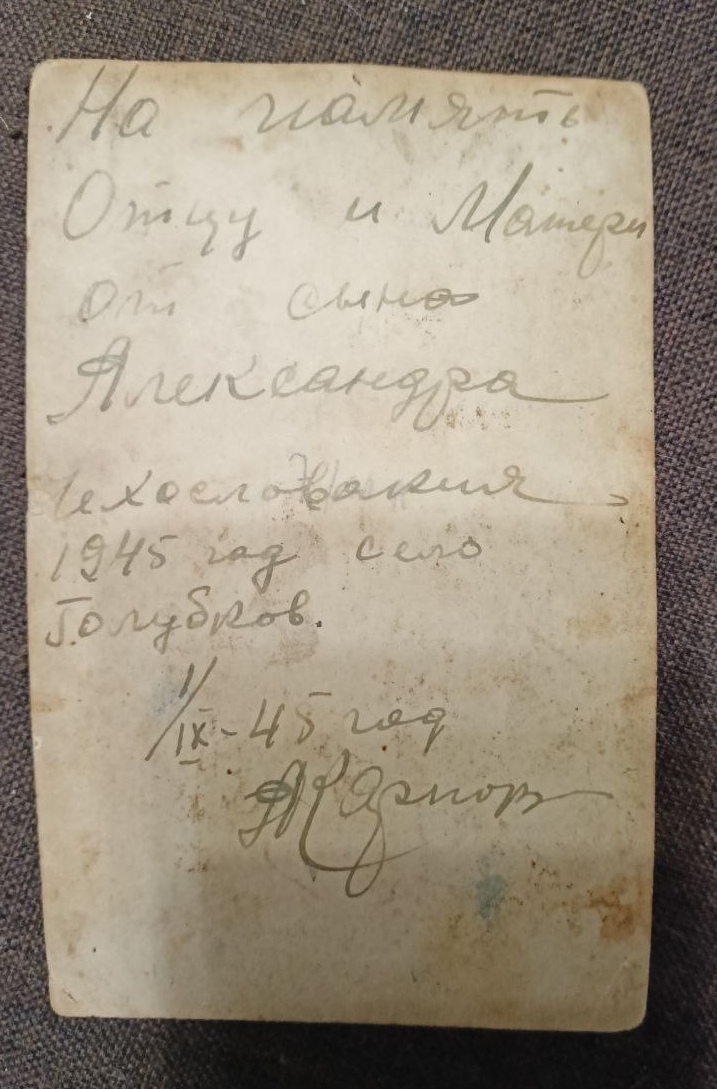 На память
Отцу и Матери
от сына
Александра
Чехословакия
1945 год село
Голубков.
1/IX-45 год